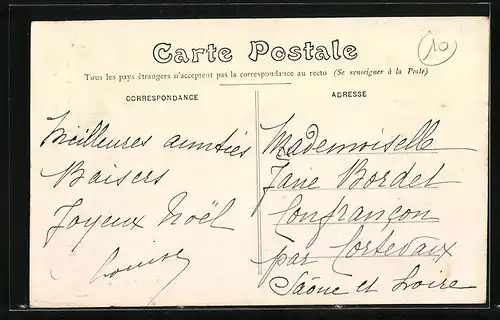 Carte Postale
10
Tous les pays étrangers n'acceptent pas la correspondance au recto (Se renseigner à la Poste)
CORRESPONDANCE
ADRESSE
Meilleures amitiés
Baisers
Joyeux Noël
Louise
Mademoiselle
Jane Bordet
Confrançon
par Cortevaix
Saône et Loire